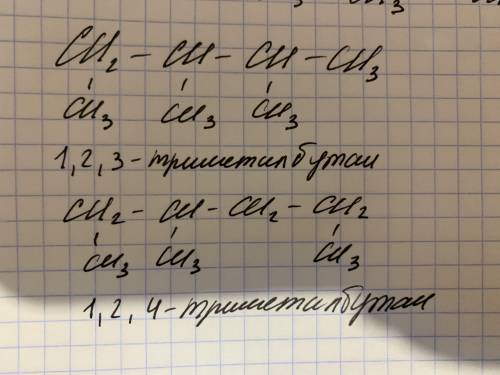 CH₂ - CH - CH - CH₃
CH₃ CH₃ CH₃
1,2,3-триметилбутан
CH₂ - CH - CH₂ - CH₂
CH₃ CH₃ CH₃
1,2,4-триметилбутан